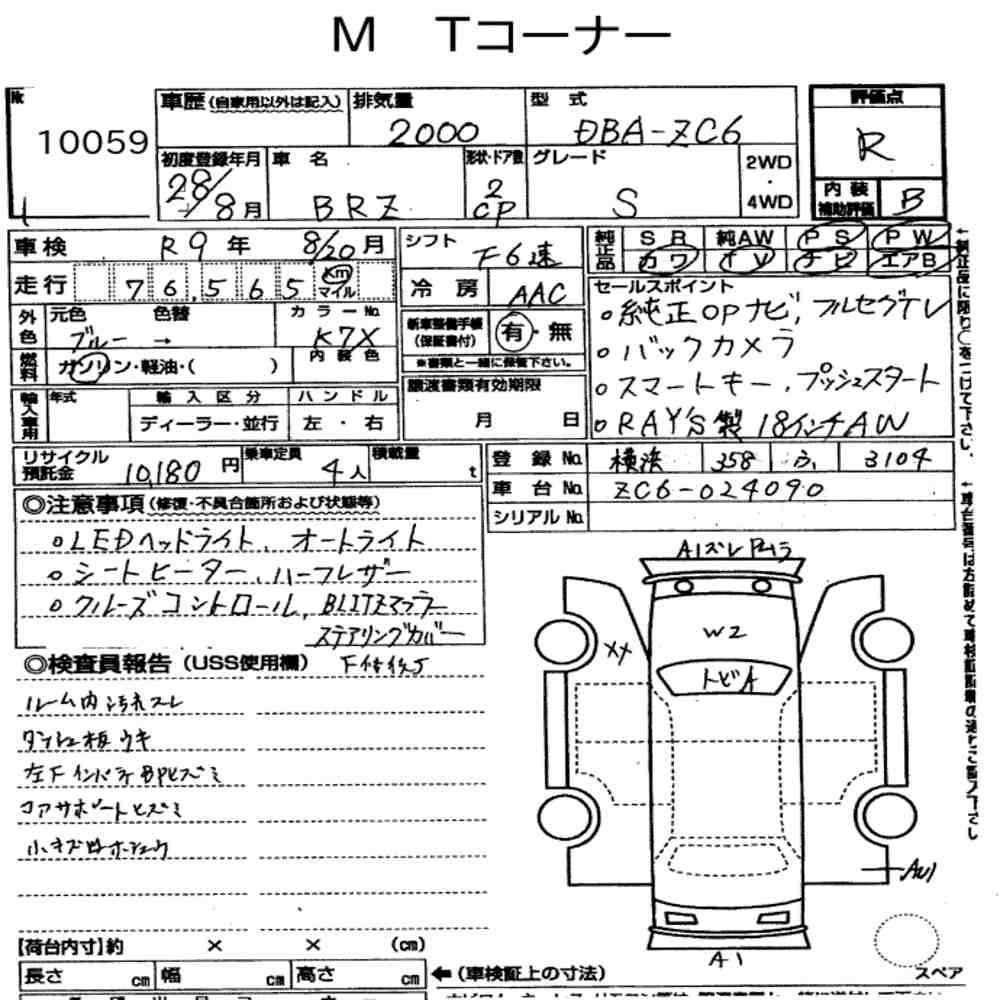 M Tコーナー
No. 10059
車歴(自家用以外は記入) 排気量 2000 型式 DBA-ZC6 評価点 R
初度登録年月 28/8月 車名 BRZ 形状・ドア数 2 CP グレード S 2WD・4WD 内装補助評価 B
車検 R9年 8/20月 シフト F6速 純正品 SR 純AW PS PW
カワ TV ナビ エアB
走行 76,565 km マイル 冷房 AAC セールスポイント
外色 元色 ブルー → 色替 カラーNo. K7X 新車整備手帳(保証書付) 有・無 。純正OPナビ, フルセグテレ
内装色 ※書類と一緒に保管下さい。 。バックカメラ
燃料 ガソリン・軽油・( ) 譲渡書類有効期限 。スマートキー, プッシュスタート
輸入車用 年式 輸入区分 ハンドル 月 日 。RAY'S製 18インチAW
ディーラー・並行 左・右
リサイクル預託金 10,180円 乗車定員 4人 積載量 t 登録No. 横浜 358 3104
車台No. ZC6-024090
シリアルNo.
◎注意事項(修復・不具合箇所および状態等)
。LEDヘッドライト, オートライト
。シートヒーター, ハーフレザー
。クルーズコントロール, BLITZマフラー
ステアリングカバー
◎検査員報告(USS使用欄)
ルーム内 汚れ スレ
左F インパネ BPヒズミ
コアサポートヒズミ
A1
W2
トビA
XX
A1
スペア
【荷台内寸】約 × × (cm)
長さ cm 幅 cm 高さ cm ←(車検証上の寸法)